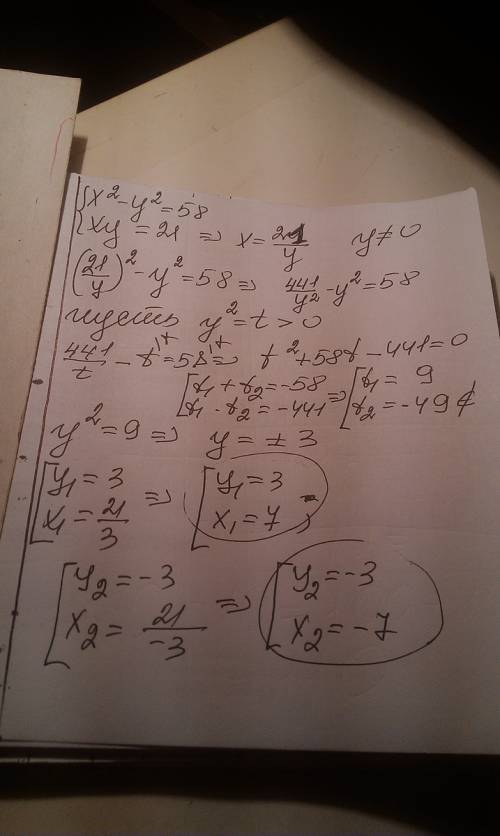 {x² - y² = 58
{xy = 21 => x = 21/y y ≠ 0
(21/y)² - y² = 58 => 441/y² - y² = 58
пусть y² = t > 0
441/t - t = 58 => t² + 58t - 441 = 0
[t₁ + t₂ = -58 => [t₁ = 9
[t₁ · t₂ = -441 [t₂ = -49 ¢
y² = 9 => y = ± 3
[y₁ = 3 => [y₁ = 3
[x₁ = 21/3 [x₁ = 7
[y₂ = -3 => [y₂ = -3
[x₂ = 21/-3 [x₂ = -7